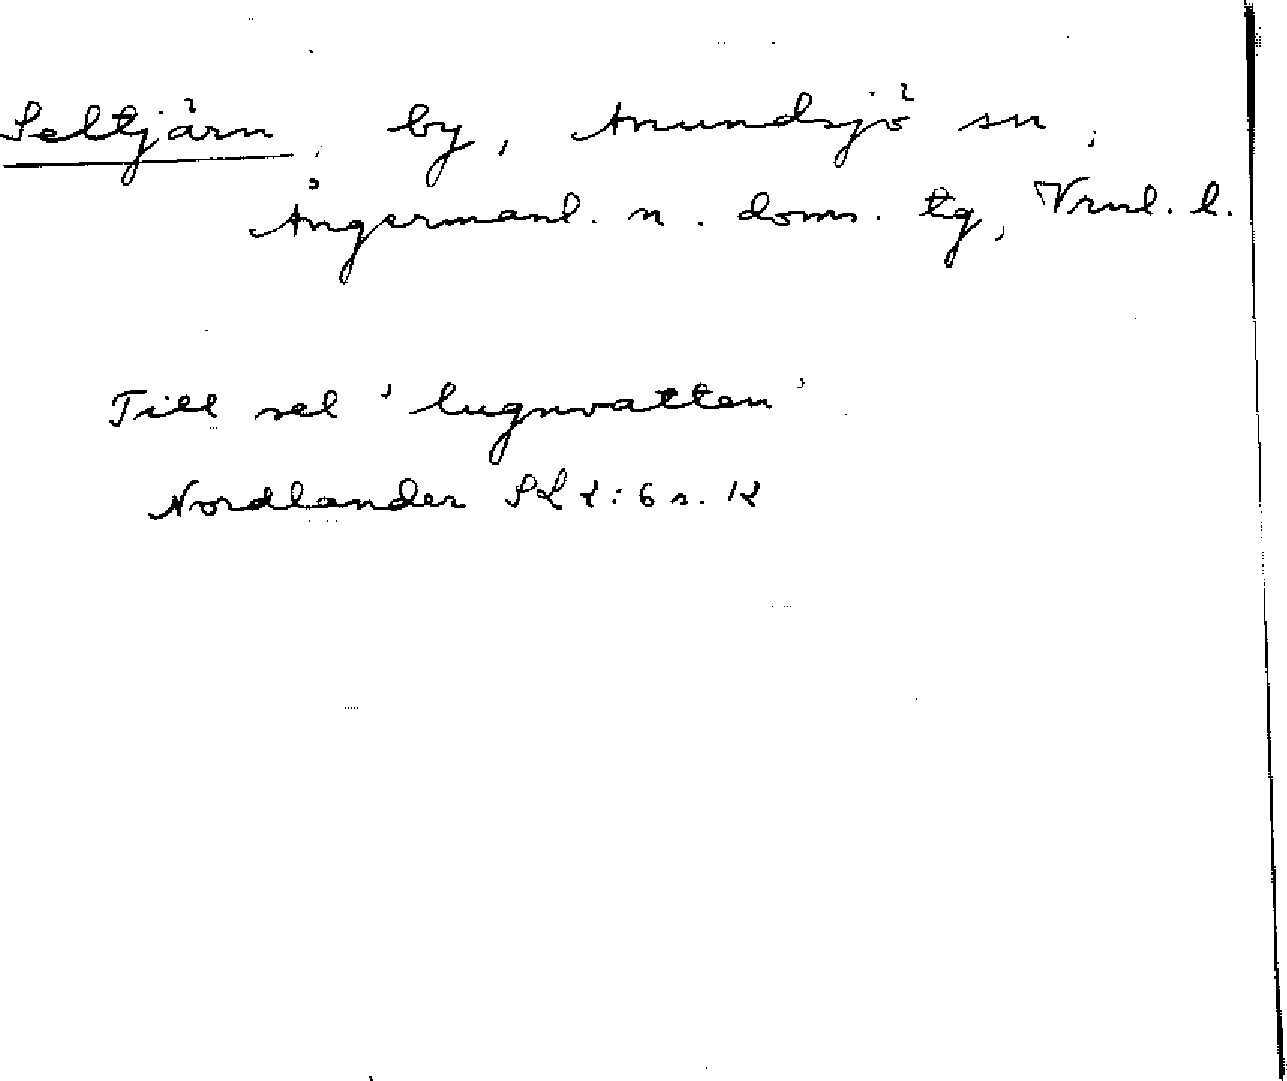 Seltjärn, by, Anundsjö sn,
Ångermanl. n. doms. tg, Vrnl. l.
Till sel 'lugnvatten'
Nordlander SL 2:6 s. 12